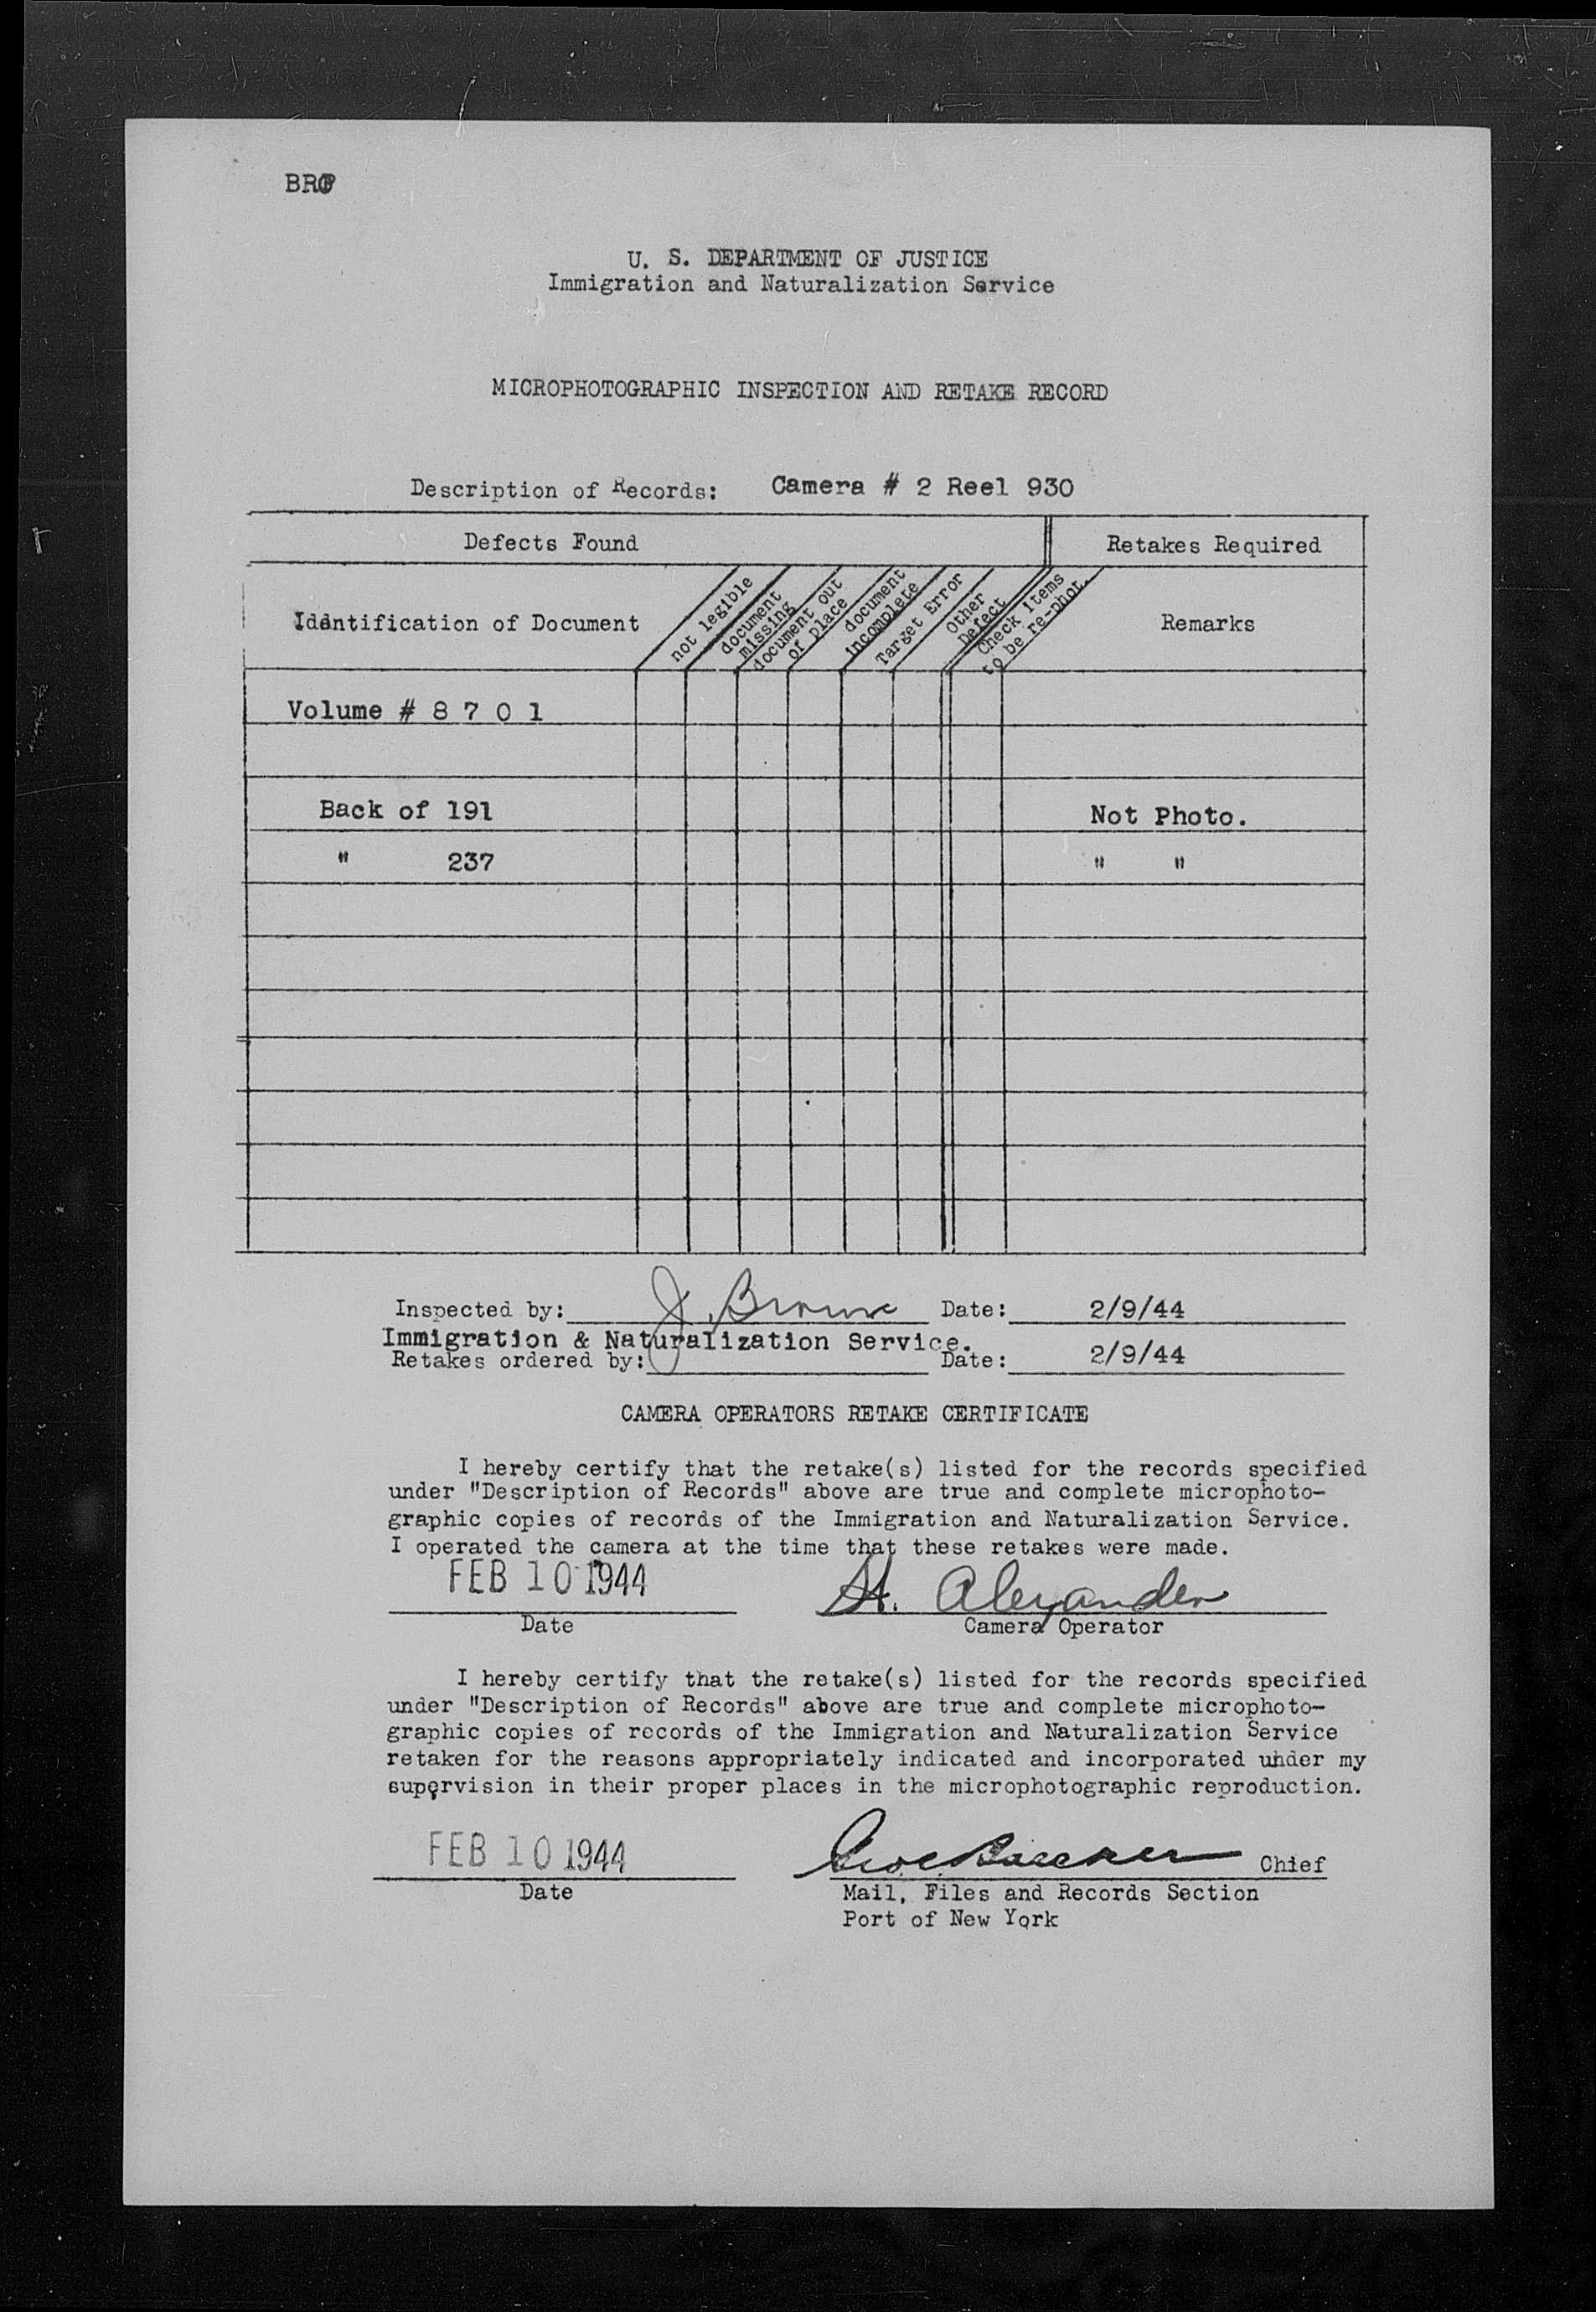 U. S. DEPARTMENT OF JUSTICE
Immigration and Naturalization Service
MICROPHOTOGRAPHIC INSPECTION AND RETAKE RECORD
Description of Records: Camera # 2 Reel 930
Defects Found Retakes Required
Identification of Document
not legible
document missing
document out of place
document incomplete
Target Error
Other Defect
Check Items to be re-phot.
Remarks
Volume # 8 7 0 1
Back of 191 Not Photo.
" 237 " "
Inspected by: J. Brown Date: 2/9/44
Immigration & Naturalization Service.
Retakes ordered by: Date: 2/9/44
CAMERA OPERATORS RETAKE CERTIFICATE
I hereby certify that the retake(s) listed for the records specified
under "Description of Records" above are true and complete microphoto-
graphic copies of records of the Immigration and Naturalization Service.
I operated the camera at the time that these retakes were made.
FEB 10 1944 H. Alexander
Date Camera Operator
I hereby certify that the retake(s) listed for the records specified
under "Description of Records" above are true and complete microphoto-
graphic copies of records of the Immigration and Naturalization Service
retaken for the reasons appropriately indicated and incorporated under my
supervision in their proper places in the microphotographic reproduction.
FEB 10 1944 Chief
Date Mail, Files and Records Section
Port of New York